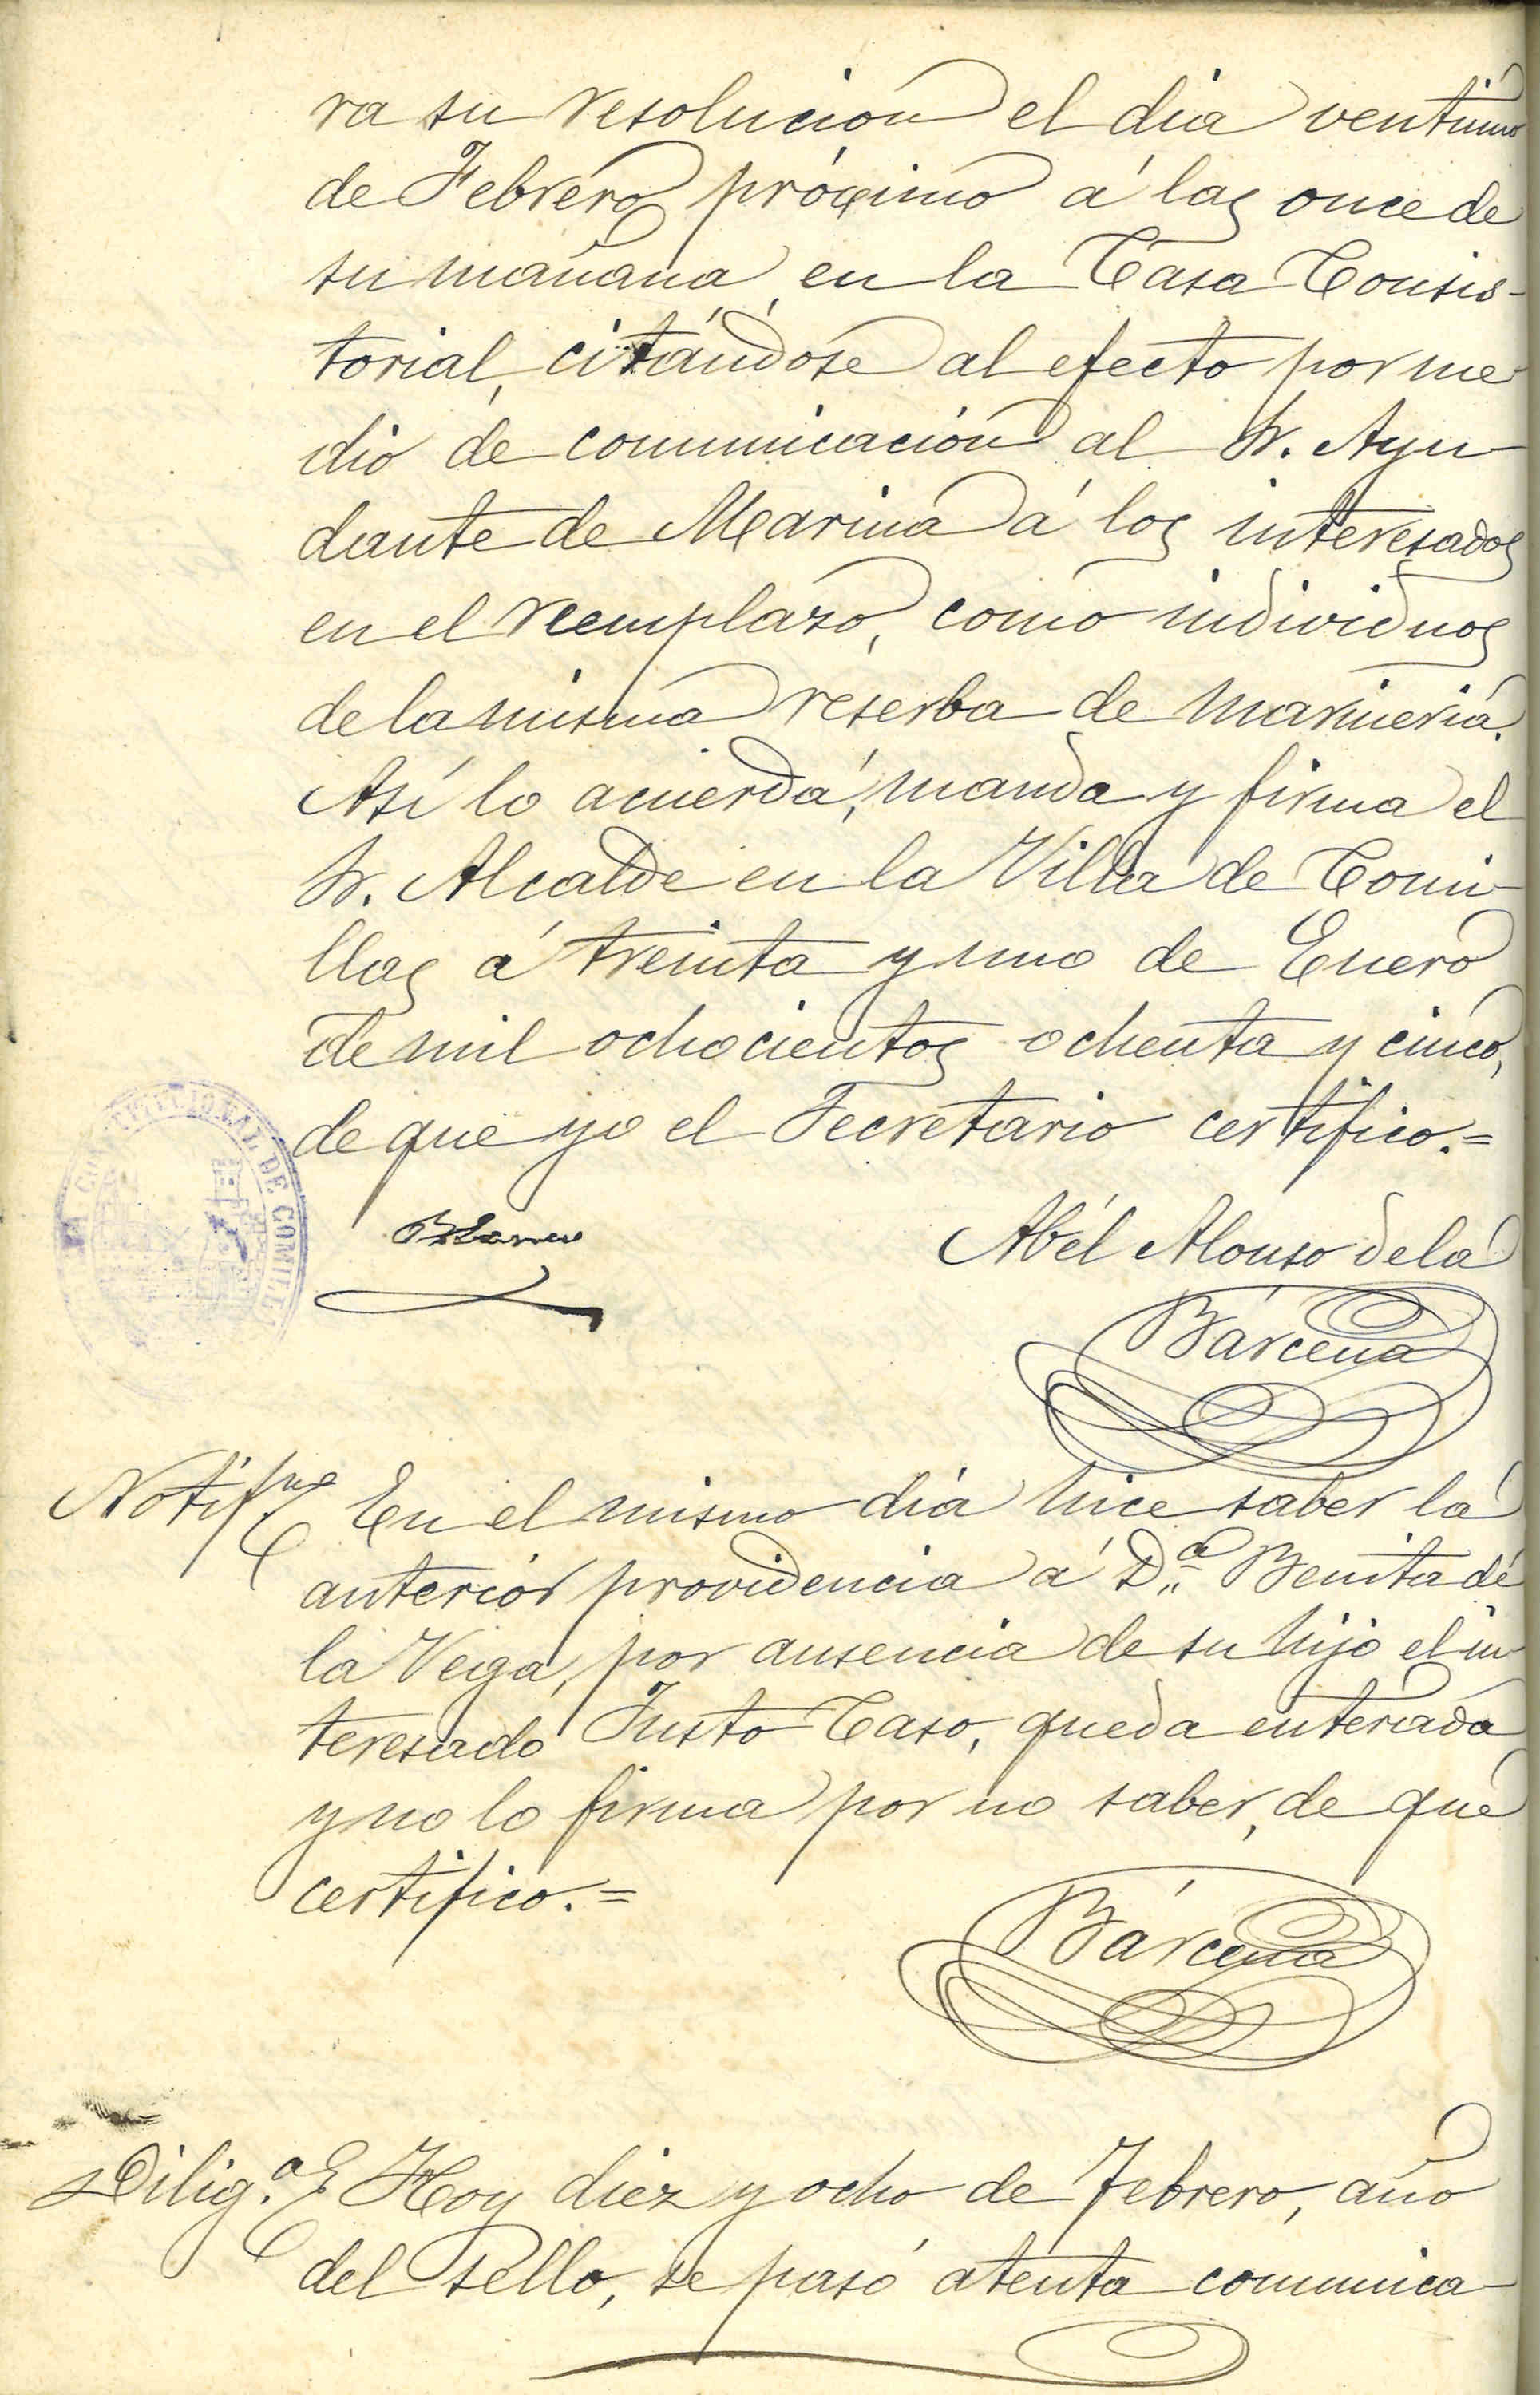 ra su resolución el dia ventiuno
de Febrero próximo á las once de
su mañana, en la Casa Consis-
torial, citándose al efecto por me-
dio de comunicación al Sr. Ayu-
dante de Marina á los interesados
en el reemplazo, como individuos
de la misma reserba de marineria.
Así lo acuerda, manda y firma el
Sr. Alcalde en la Villa de Comi-
llas á treinta y uno de Enero
de mil ochocientos ochenta y cinco,
de que yo el Secretario certifico.=
CONSTITUCIONAL DE COMILLAS
Blanco
Abél Alonso de la
Bárcena
Notif.ne En el mismo dia hice saber la
anterior providencia á D.ª Benita de
la Vega, por ausencia de su hijo el in-
teresado Justo Caso, queda enterada
y no lo firma por no saber, de que
certifico.=
Bárcena
Dilig.ª Hoy diez y ocho de Febrero, año
del sello, se pasó atenta comunica-